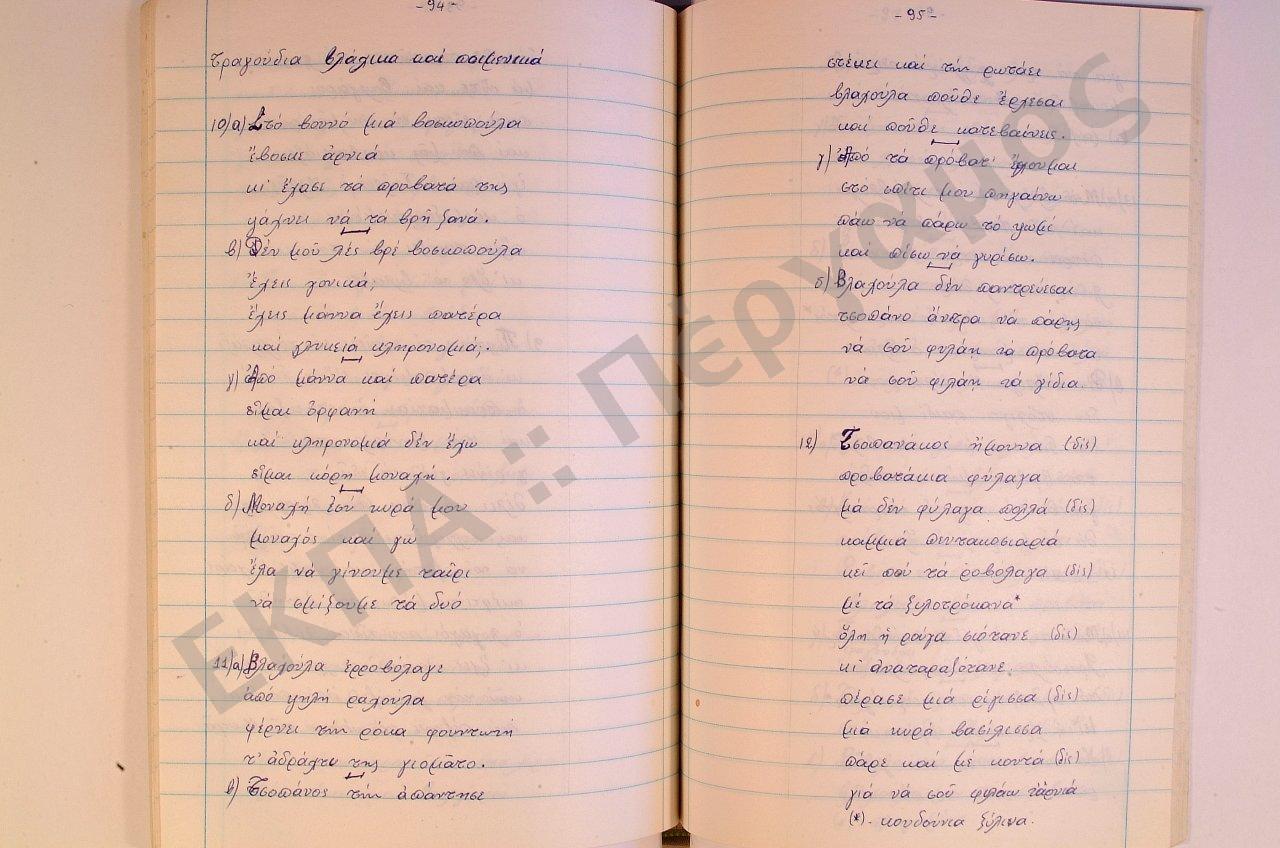 -94-
Τραγούδια βλάχικα καί ποιμενικά
10) α) Στό βουνό μιά βοσκοπούλα
ἔβοσκε ἀρνιά
κι' ἔχασε τά πρόβατά της
ψάχνει νά τά βρῆ ξανά.
β) Δέν μοῦ λές βρέ βοσκοπούλα
ἔχεις γονικά;
ἔχεις μάννα ἔχεις πατέρα
καί γλυκειά κληρονομιά;.
γ) Ἀπό μάννα καί πατέρα
εἶμαι ὀρφανή
καί κληρονομιά δέν ἔχω
εἶμαι κόρη μοναχή.
δ) Μοναχή ἐσύ κυρά μου
μοναχός καί γω
ἔλα νά γίνουμε ταῖρι
νά σμίξουμε τά δυό
11) α) Βλαχούλα ἐρροβόλαγε
ἀπό ψηλή ραχούλα
φέρνει τήν ρόκα φουντωτή
τ' ἀδράχτυ της γιομᾶτο.
β) Τσοπάνος τήν ἀπάντησε
-95-
στέκει καί τήν ρωτάει
βλαχούλα ποῦθε ἔρχεσαι
καί ποῦθε κατεβαίνεις.
γ) Ἀπό τά πρόβατ' ἔρχουμαι
στό σπίτι μου πηγαίνω
πάω νά πάρω τό ψωμί
καί πίσω νά γυρίσω.
δ) Βλαχούλα δέν παντρεύεσαι
τσοπάνο ἄντρα νά πάρης
νά σοῦ φυλάη τά πρόβατα
νά σοῦ φιλάη τά γίδια.
12) Τσοπανάκος ἤμουννα (δίς)
προβατάκια φύλαγα
μά δέν φύλαγα πολλά (δίς)
καμμιά πεντακοσιαριά
κεῖ πού τά ροβολαγα (δίς)
μέ τά ξυλοτρόκανα*
ὅλη ἡ ράχα σιότανε (δίς)
κι ἀναταραζότανε.
πέρασε μιά ρίγισσα (δίς)
μιά κυρά βασίλισσα
πάρε καί μέ κοντά (δίς)
γιά νά σοῦ φιλάω τἀρνιά
(*). κουδούνια ξύλινα.
ΕΚΠΑ :: Πέργαμος